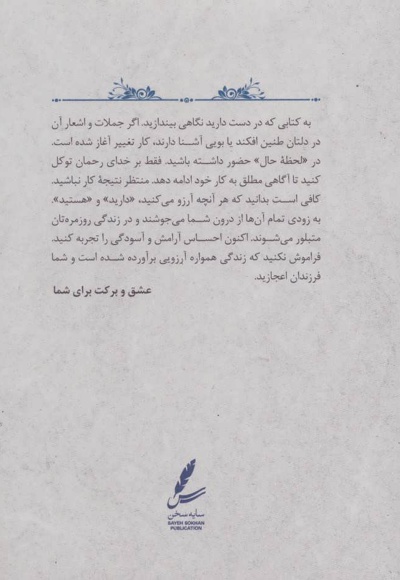 به کتابی که در دست دارید نگاهی بیندازید. اگر جملات و اشعار آن
در دلتان طنین افکند یا بویی آشنا دارند، کار تغییر آغاز شده است.
در «لحظهٔ حال» حضور داشته باشید. فقط بر خدای رحمان توکل
کنید تا آگاهی مطلق به کار خود ادامه دهد. منتظر نتیجهٔ کار نباشید.
کافی است بدانید که هر آنچه آرزو می‌کنید، «دارید» و «هستید».
به زودی تمام آن‌ها از درون شما می‌جوشند و در زندگی روزمره‌تان
متبلور می‌شوند. اکنون احساس آرامش و آسودگی را تجربه کنید.
فراموش نکنید که زندگی همواره آرزویی برآورده شده است و شما
فرزندان اعجازید.
عشق و برکت برای شما
سایه سخن
SAYEH SOKHAN
PUBLICATION